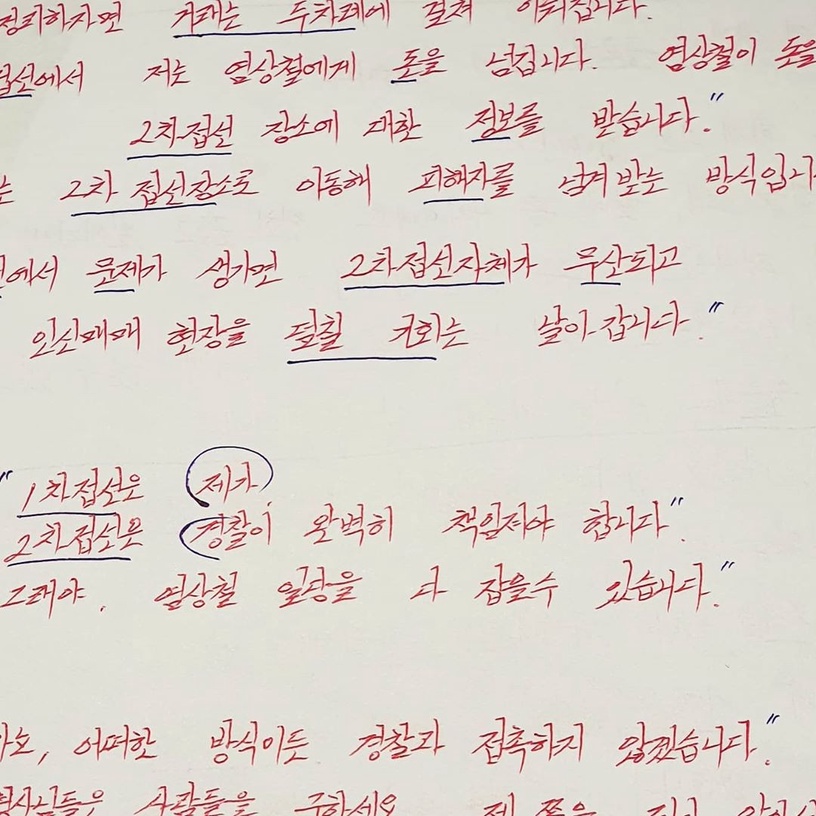 정리하자면 거래는 두차례에 걸쳐 이뤄집니다.
접선에서 저는 염상철에게 돈을 넘깁니다. 염상철이 돈을
2차접선 장소에 대한 정보를 받습니다."
는 2차 접선장소로 이동해 피해자를 넘겨받는 방식입니
에서 문제가 생기면 2차접선자체가 무산되고
인신매매 현장을 덮칠 기회는 날아갑니다."
"1차접선은 제가,
2차접선은 경찰이 완벽히 책임져야 합니다".
그래야. 염상철 일당을 다 잡을수 있습니다."
어떠한 방식이든 경찰과 접촉하지 않겠습니다."
형사님들은 사람들을 구하세요 전 쪽은